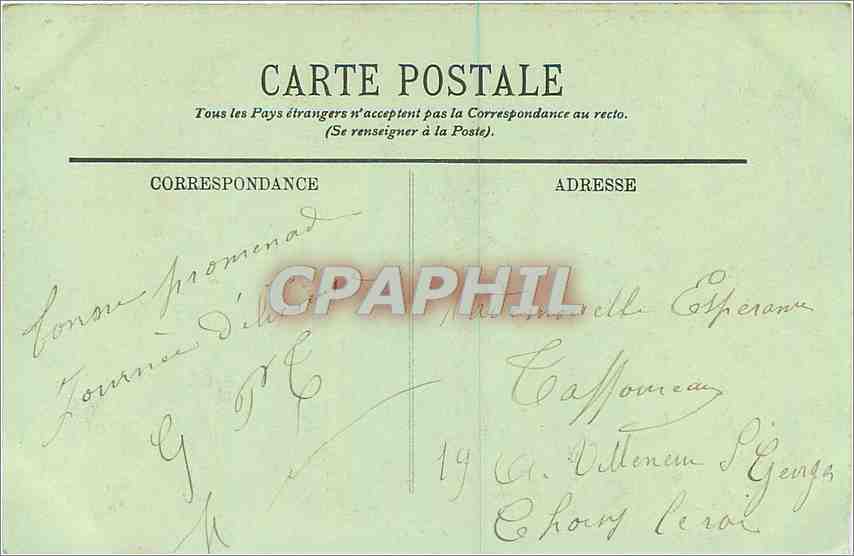 CARTE POSTALE
Tous les Pays étrangers n'acceptent pas la Correspondance au recto.
(Se renseigner à la Poste).
CORRESPONDANCE
ADRESSE
bonne promenad
Journée
G M T
CPAPHIL
Mademoiselle Esperance
19 A. Villeneuv St Georges
Choisy le roi